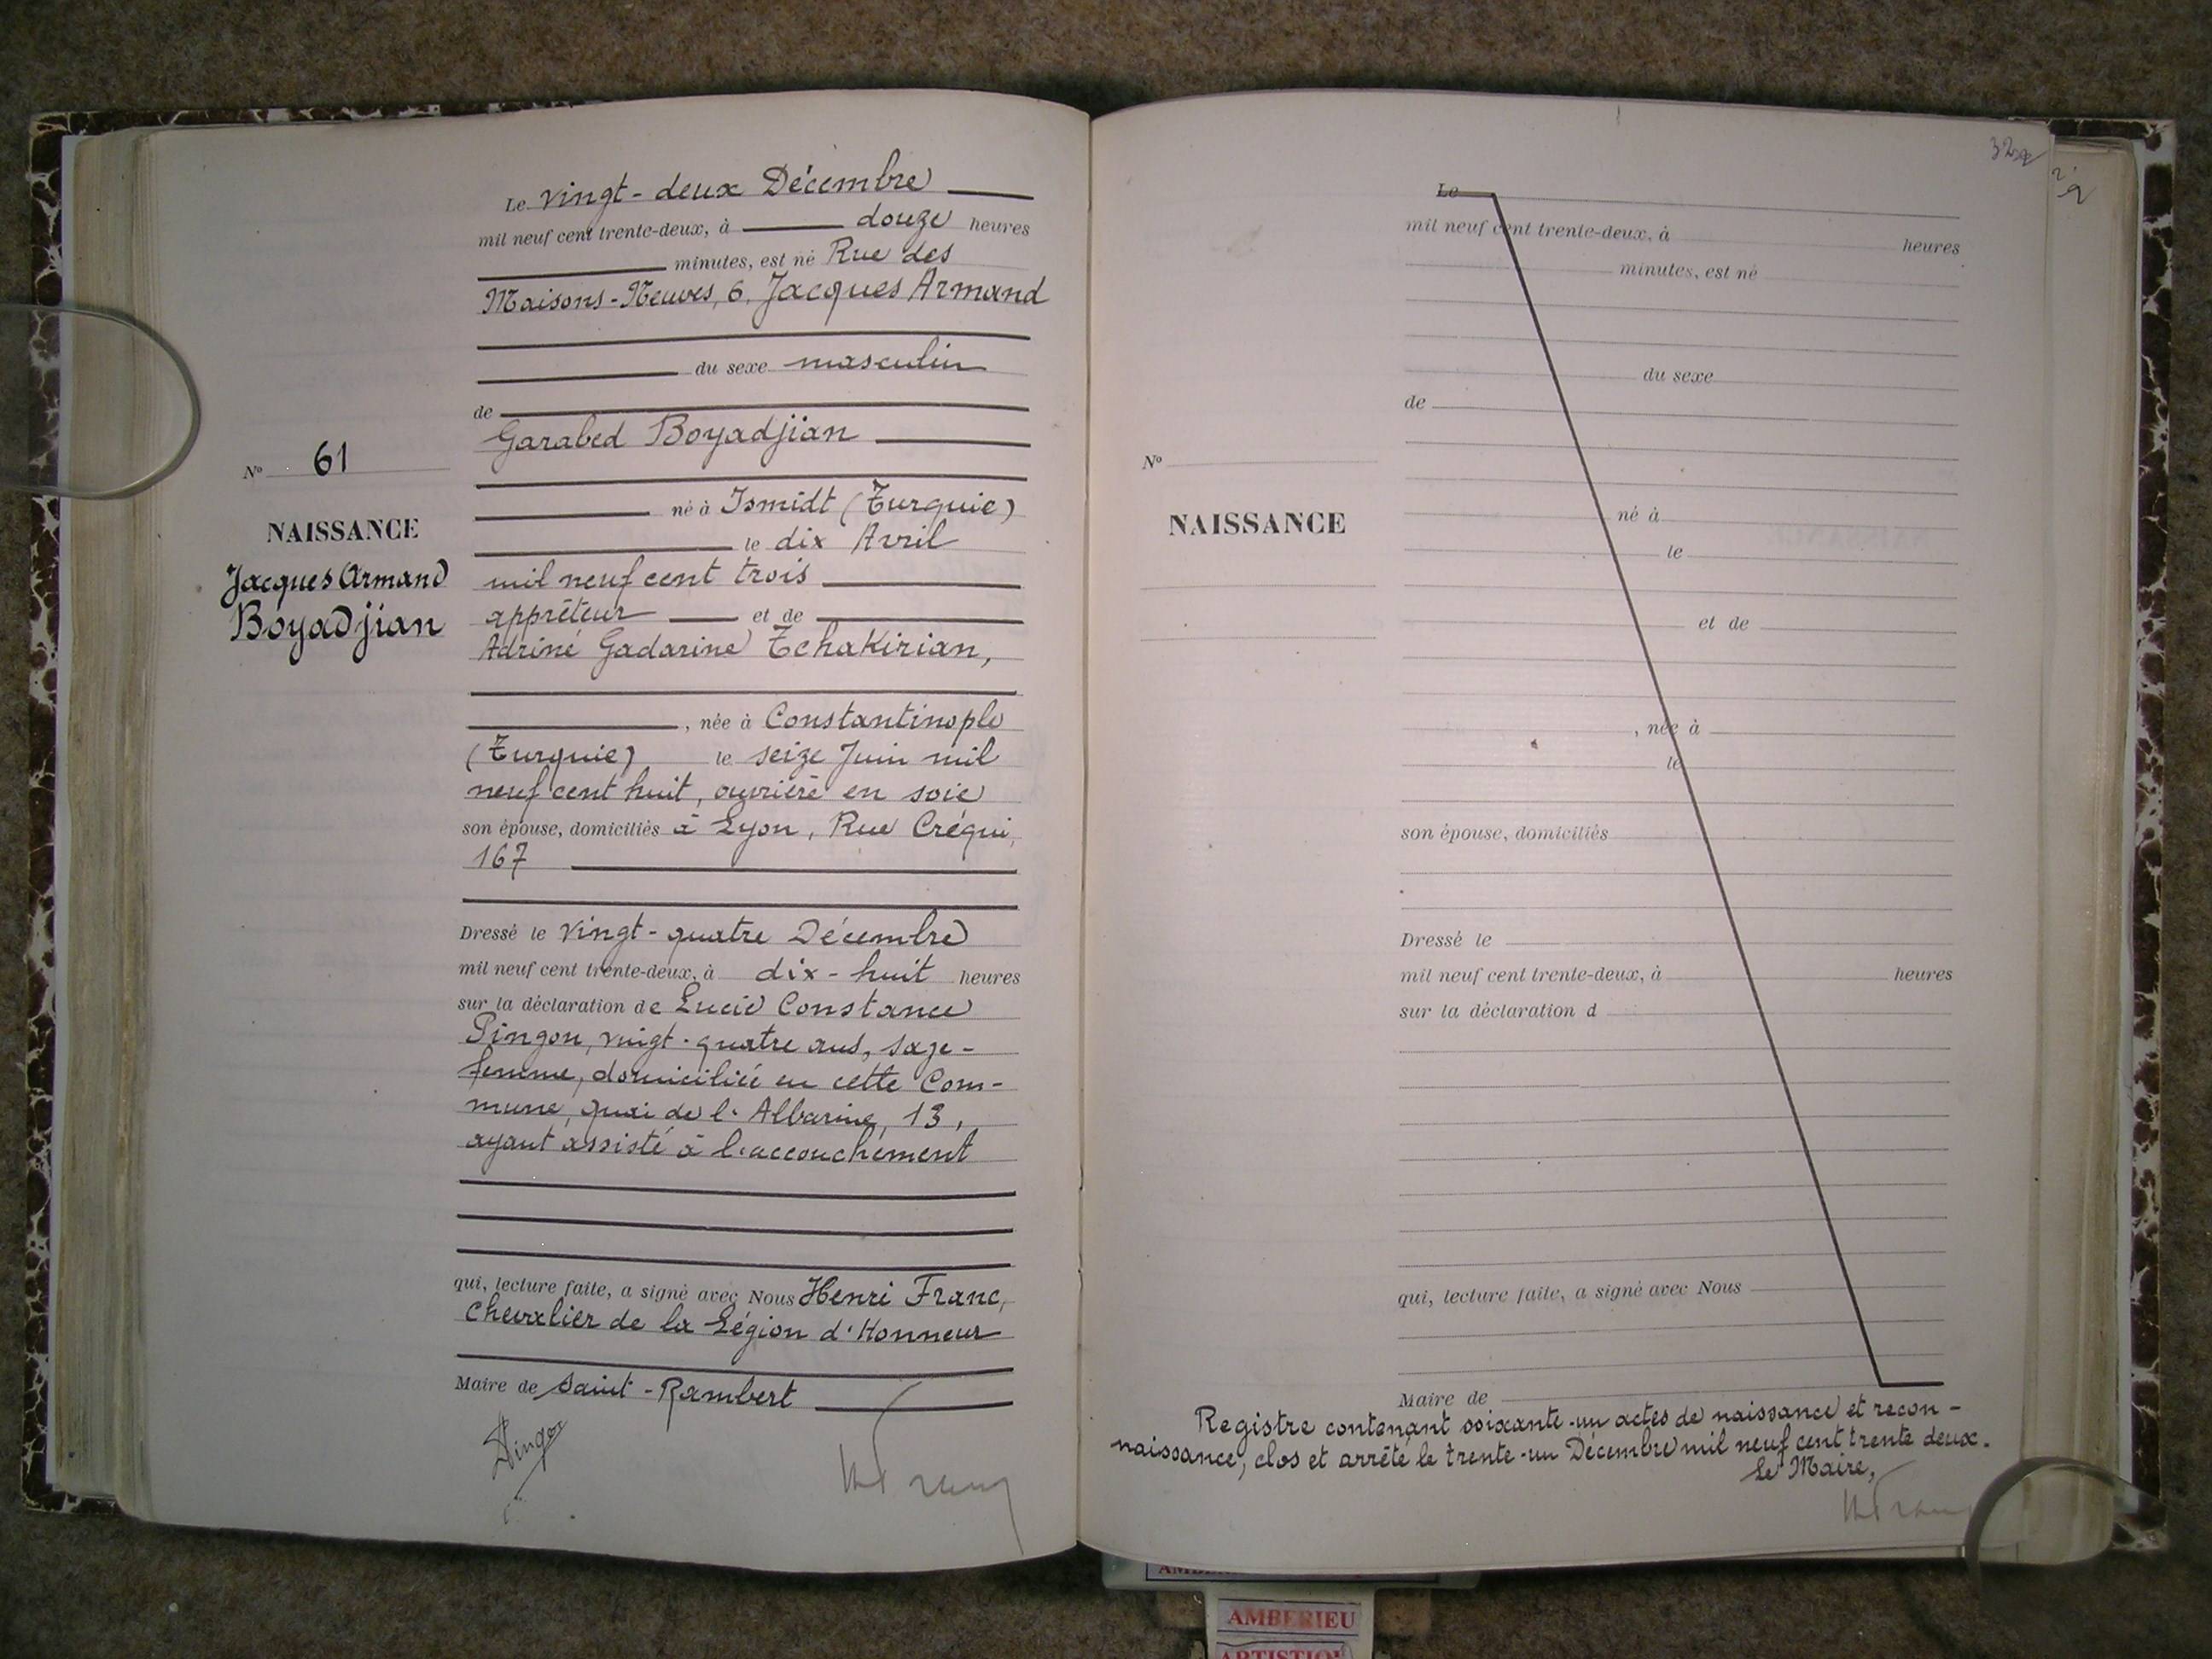 Le vingt-deux Décembre
mil neuf cent trente-deux, à douze heures
minutes, est né Rue des
Maisons-Neuves, 6, Jacques Armand
du sexe masculin
de
Garabed Boyadjian
né à Ismidt (Turquie)
le dix Avril
mil neuf cent trois
apprêteur et de
Adriné Gadarine Tchakirian,
, née à Constantinople
(Turquie) le seize Juin mil
neuf cent huit, ouvrière en soie
son épouse, domiciliés à Lyon, Rue Créqui,
167
Dressé le vingt-quatre Décembre
mil neuf cent trente-deux, à dix-huit heures
sur la déclaration de Lucie Constance
Pingon, vingt-quatre ans, sage-
femme, domiciliée en cette Com-
mune, quai de l'Albarine, 13,
ayant assisté à l'accouchement
qui, lecture faite, a signé avec Nous Henri Franc,
Chevalier de la Légion d'Honneur
Maire de Saint-Rambert
Pingon
N° 61
NAISSANCE
Jacques Armand
Boyadjian
Le
mil neuf cent trente-deux, à heures
minutes, est né
du sexe
de
né à
le
et de
, née à
le
son épouse, domiciliés
Dressé le
mil neuf cent trente-deux, à heures
sur la déclaration d
qui, lecture faite, a signé avec Nous
Maire de
N°
NAISSANCE
Registre contenant soixante-un actes de naissance et recon-
naissance, clos et arrêté le trente-un Décembre mil neuf cent trente deux.
Le Maire,
AMBERIEU